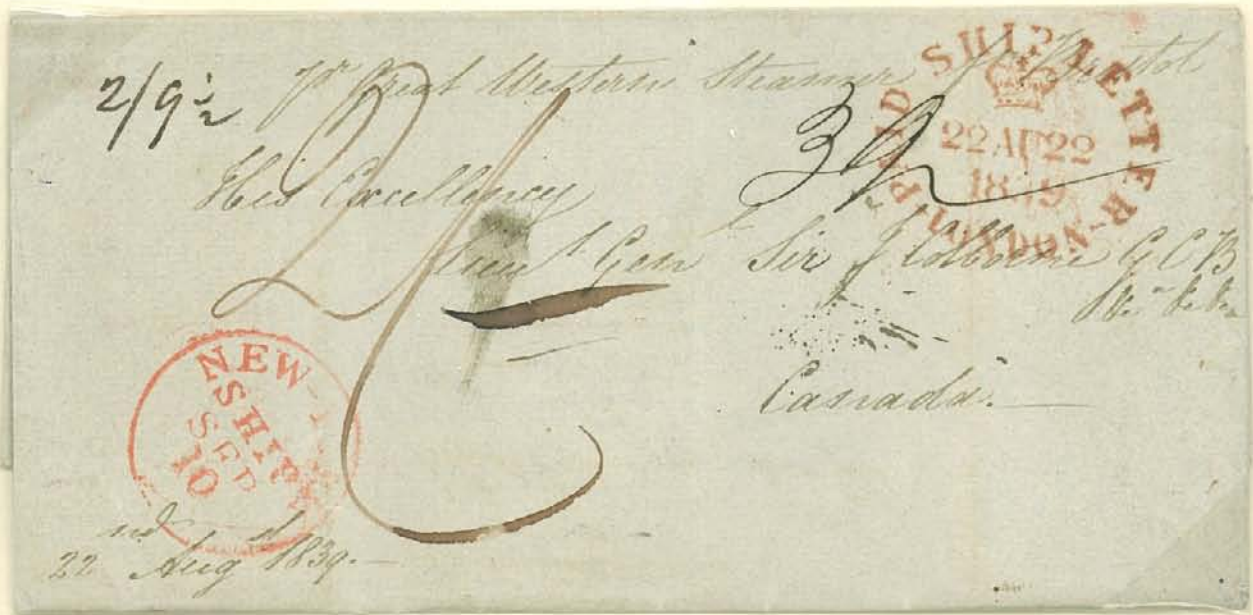 2/9½
Pr Great Western Steamer Bristol
PAID SHIP LETTER·LONDON·
22 AU 22
1839
39
His Excellency
Lieut Genl Sir J Colborne G C B
&c &c &c
Canada.
NEW-
SHIP
SEP
10
22nd Aug 1839.